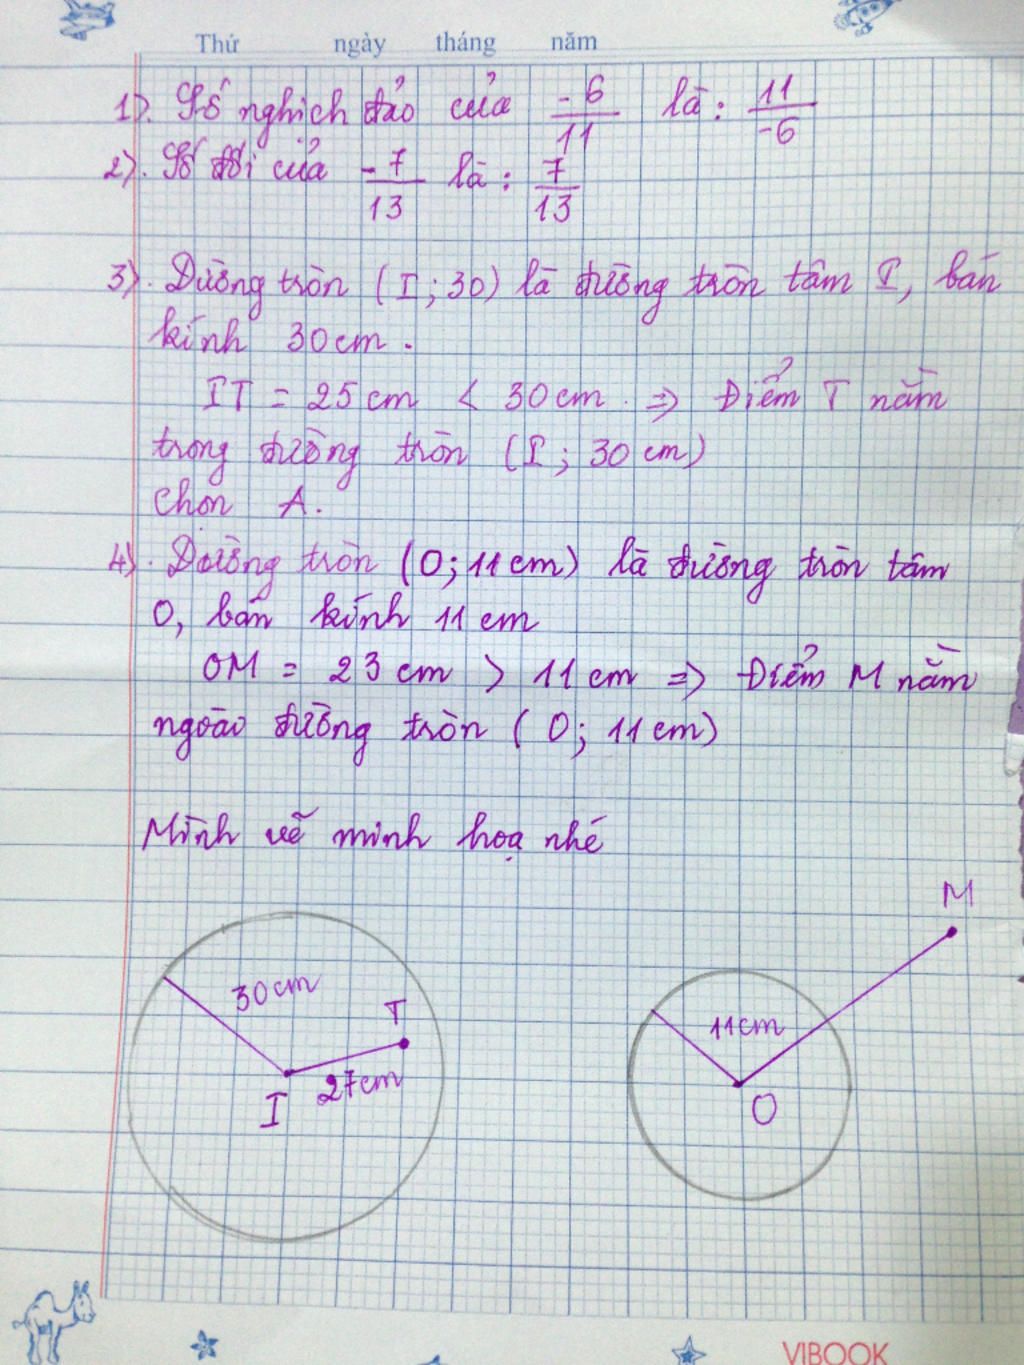 Thứ ngày tháng năm
1). Số nghịch đảo của -6/11 là: 11/-6
2). Số đối của -7/13 là: 7/13
3). Đường tròn (I; 30) là đường tròn tâm I, bán
kính 30cm.
IT = 25cm < 30cm. => Điểm T nằm
trong đường tròn (I; 30cm)
Chọn A.
4). Đường tròn (O; 11cm) là đường tròn tâm
O, bán kính 11cm
OM = 23cm > 11cm => Điểm M nằm
ngoào đường tròn (O; 11cm)
Mình vẽ minh hoạ nhé
M
30cm
T
11cm
27cm
I
O
VIBOOK